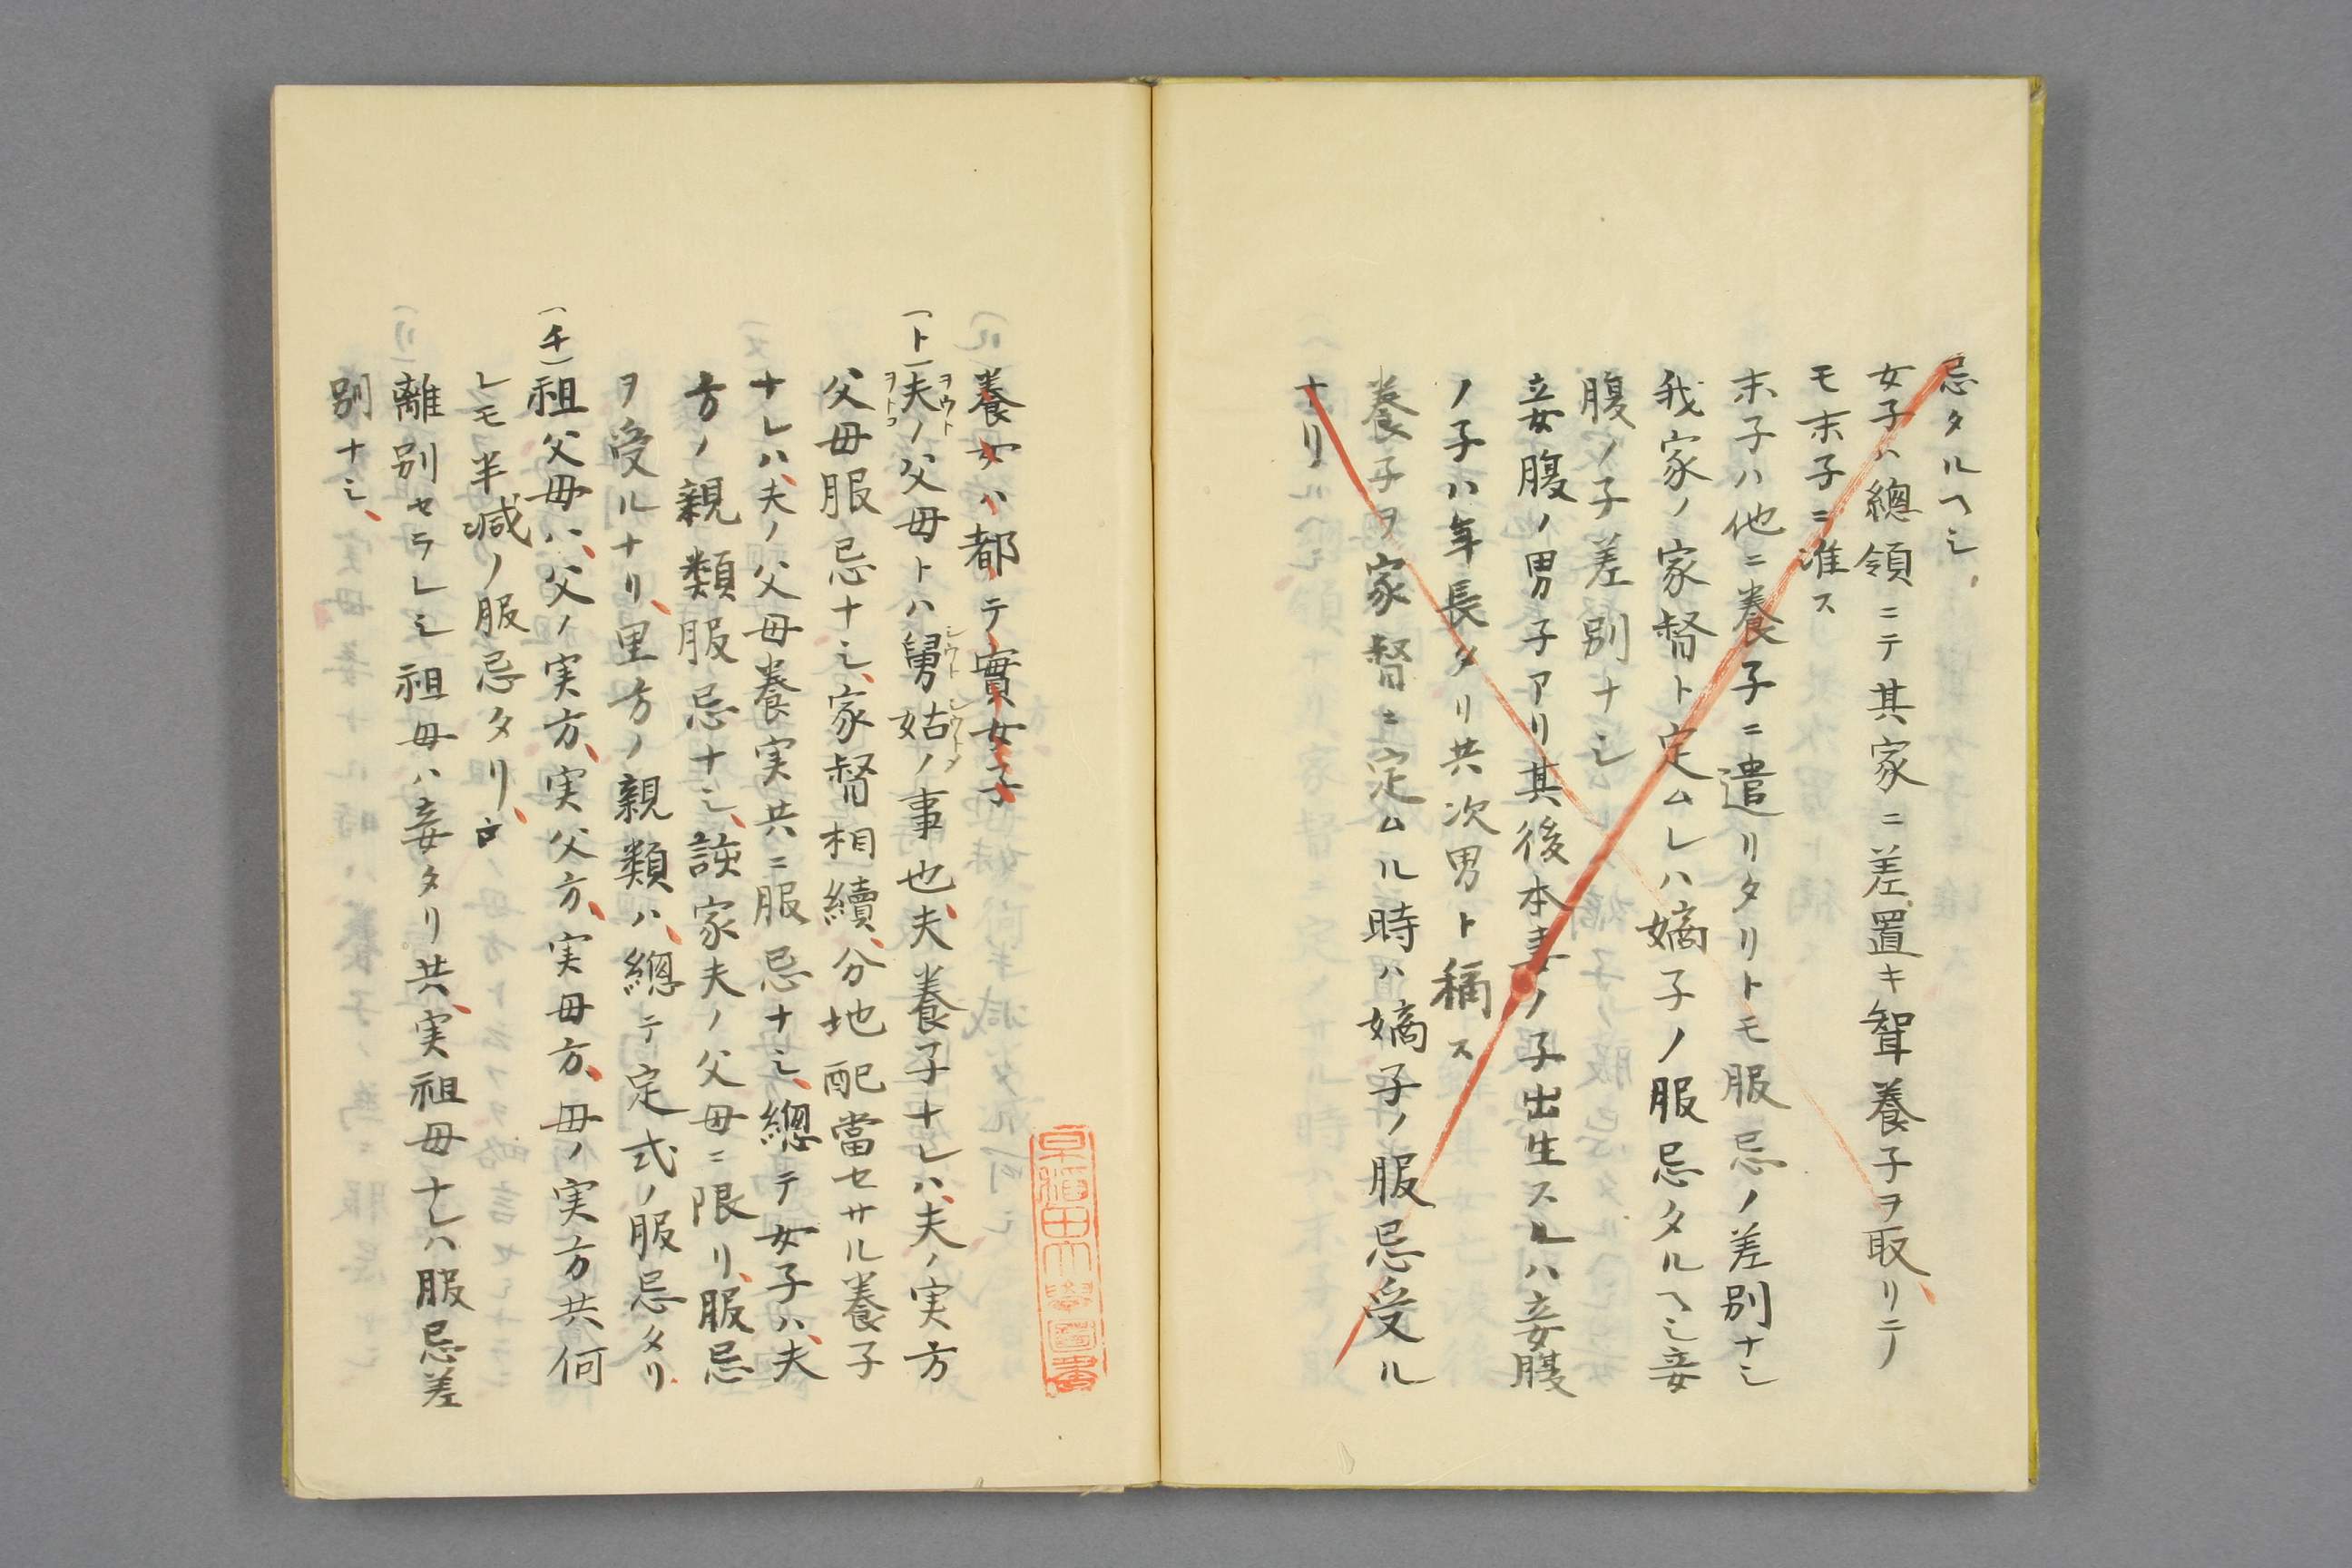 忌タルヘシ
女子ハ總領ニテ其家ニ差置キ聟養子ヲ取リテ
モ末子ニ准ス
末子ハ他ニ養子ニ遣リタリトモ服忌ノ差別ナシ
我家ノ家督ト定ムレハ嫡子ノ服忌タルヘシ妾
腹ノ子差別ナシ
妾腹ノ男子アリ其後本妻ノ子出生スレハ妾腹
ノ子ハ年長タリ共次男ト稱ス
養子ヲ家督ニ定ムル時ハ嫡子ノ服忌受ル
ナリ
養女ハ都テ實女子
(ト)夫ノ父母トハ舅姑ノ事也、夫養子ナレハ、夫ノ実方
ヲウト
ヲトコ
シウト
シウトメ
父母服忌ナシ、家督相續、分地配當セサル養子
ナレハ、夫ノ父母養実共ニ服忌ナシ、總テ女子ハ、夫
方ノ親類服忌ナシ、該家夫ノ父母ニ限リ、服忌
ヲ受ルナリ、里方ノ親類ハ、總テ定式ノ服忌タリ
(チ)祖父母ハ、父ノ実方、実父方、実母方、母ノ実方共何
レモ半減ノ服忌タリ、
離別セラレシ祖母ハ妾タリ共、実祖母ナレハ服忌差
別ナシ、
早稲田大學圖書